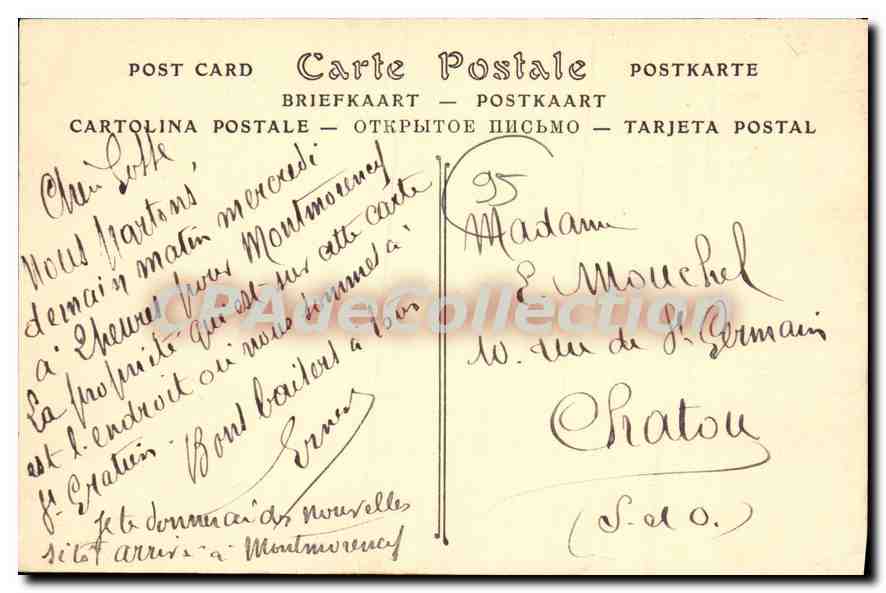 POST CARD Carte Postale POSTKARTE
BRIEFKAART — POSTKAART
CARTOLINA POSTALE — ОТКРЫТОЕ ПИСЬМО — TARJETA POSTAL
Nous partons,
demain matin mercredi
à 2 heures pour Montmorency
La propriété qui est sur cette carte
est l'endroit où nous sommes à
St Gratien. Bons baisers à tous
Ernest
Je te donnerai des nouvelles
sitôt arrivé à Montmorency
95
Madame
E Mouchel
10. rue de St Germain
Chatou
(S. et O.)
CPAdeCollection